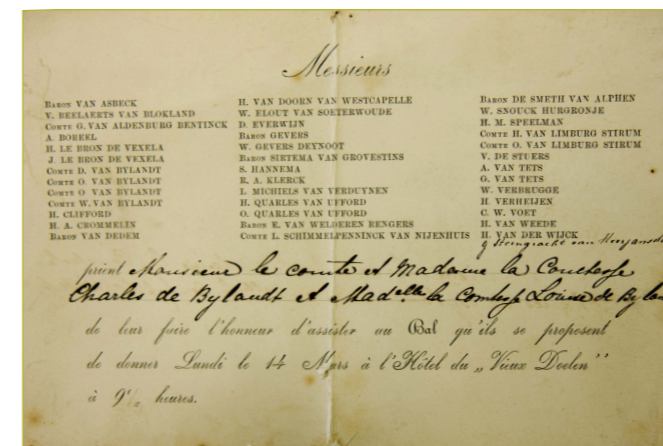 Messieurs
BARON VAN ASBECK
V. BEELAERTS VAN BLOKLAND
COMTE G. VAN ALDENBURG BENTINCK
A. BOREEL
H. LE BRON DE VEXELA
J. LE BRON DE VEXELA
COMTE D. VAN BYLANDT
COMTE O. VAN BYLANDT
COMTE O. VAN BYLANDT
COMTE W. VAN BYLANDT
H. CLIFFORD
H. A. CROMMELIN
BARON VAN DEDEM
H. VAN DOORN VAN WESTCAPELLE
W. ELOUT VAN SOETERWOUDE
D. EVERWIJN
BARON GEVERS
W. GEVERS DEYNOOT
BARON SIRTEMA VAN GROVESTINS
S. HANNEMA
R. A. KLERCK
L. MICHIELS VAN VERDUYNEN
H. QUARLES VAN UFFORD
O. QUARLES VAN UFFORD
BARON E. VAN WELDEREN RENGERS
COMTE L. SCHIMMELPENNINCK VAN NIJENHUIS
BARON DE SMETH VAN ALPHEN
W. SNOUCK HURGRONJE
H. M. SPEELMAN
COMTE H. VAN LIMBURG STIRUM
COMTE O. VAN LIMBURG STIRUM
V. DE STUERS
A. VAN TETS
G. VAN TETS
W. VERBRUGGE
H. VERHEIJEN
C. W. VOET
H. VAN WEEDE
H. VAN DER WIJCK
Steengracht van
prient Monsieur le comte et Madame la Comtesse
Charles de Bylandt et Madelle la Comtesse Louise de
de leur faire l'honneur d'assister au Bal qu'ils se proposent
de donner Lundi le 14 Mars à l'Hôtel du „Vieux Doelen"
à 9½ heures.